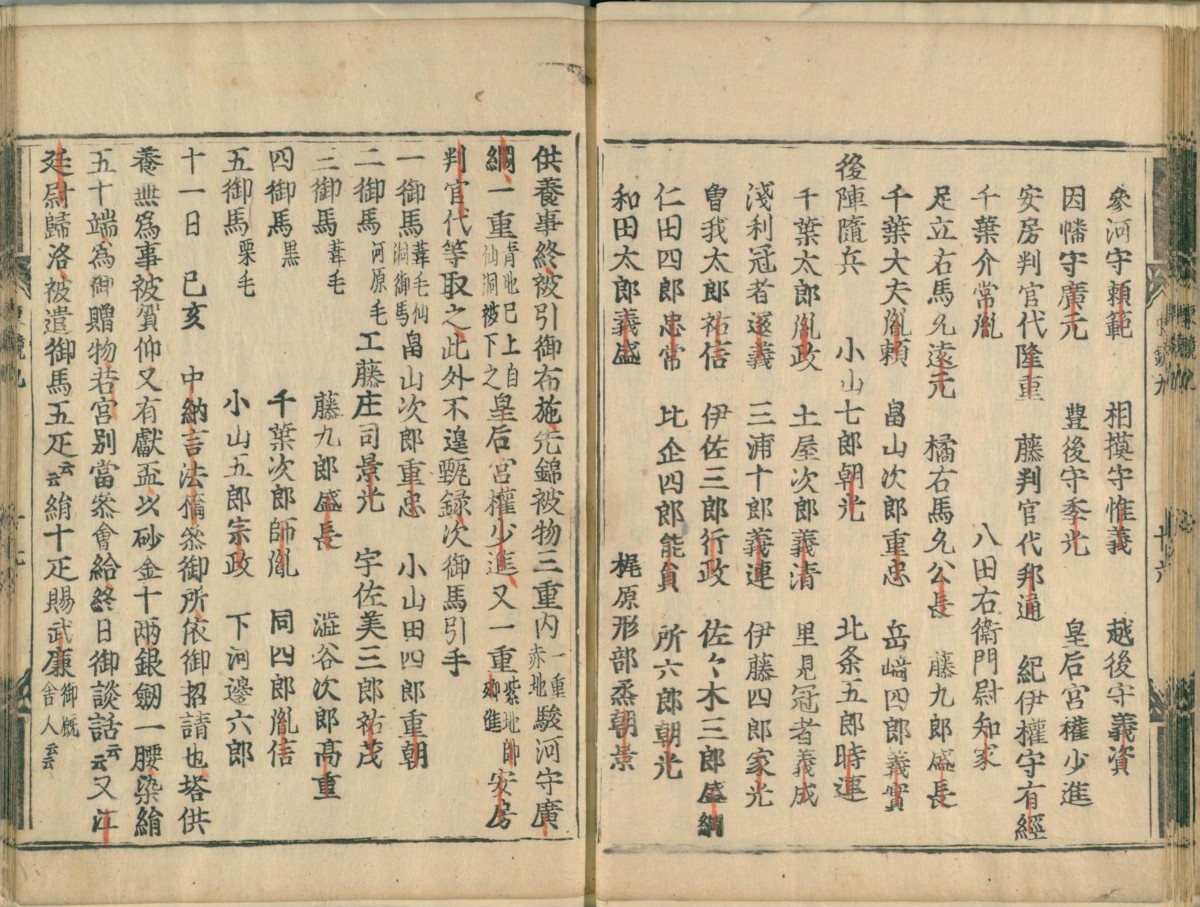 參河守頼範 相摸守惟義 越後守義資
因幡守廣元 豊後守季光 皇后宮權少進
安房判官代隆重 藤判官代邦通 紀伊權守有經
千葉介常胤 八田右衛門尉知家
足立右馬允遠元 橘右馬允公長 藤九郎盛長
千葉大夫胤頼 畠山次郎重忠 岳﨑四郎義實
後陣隨兵 小山七郎朝光 北条五郎時連
千葉太郎胤政 土屋次郎義清 里見冠者義成
淺利冠者遠義 三浦十郎義連 伊藤四郎家光
曽我太郎祐信 伊佐三郎行政 佐々木三郎盛綱
仁田四郎忠常 比企四郎能貟 所六郎朝光
和田太郎義盛 梶原形部烝朝景
供養事終被引御布施先錦被物三重内一重赤地駿河守廣
綱一重青地已上自仙洞被下之皇后宮權少進又一重紫地帥卿進安房
判官代等取之此外不遑甄録次御馬引手
一御馬葦毛仙洞御馬 畠山次郎重忠 小山田四郎重朝
二御馬河原毛 工藤庄司景光 宇佐美三郎祐茂
三御馬葦毛 藤九郎盛長 澁谷次郎髙重
四御馬黒 千葉次郎師胤 同四郎胤信
五御馬栗毛 小山五郎宗政 下河邊六郎
十一日 己亥 中納言法橋參御所依御招請也塔供
養無爲事被賀仰又有獻盃以砂金十兩銀劔一腰染絹
五十端爲御贈物若宮別當參會給終日御談話云云又江
廷尉歸洛被遣御馬五疋云云絹十疋賜武廉御厩舎人云云